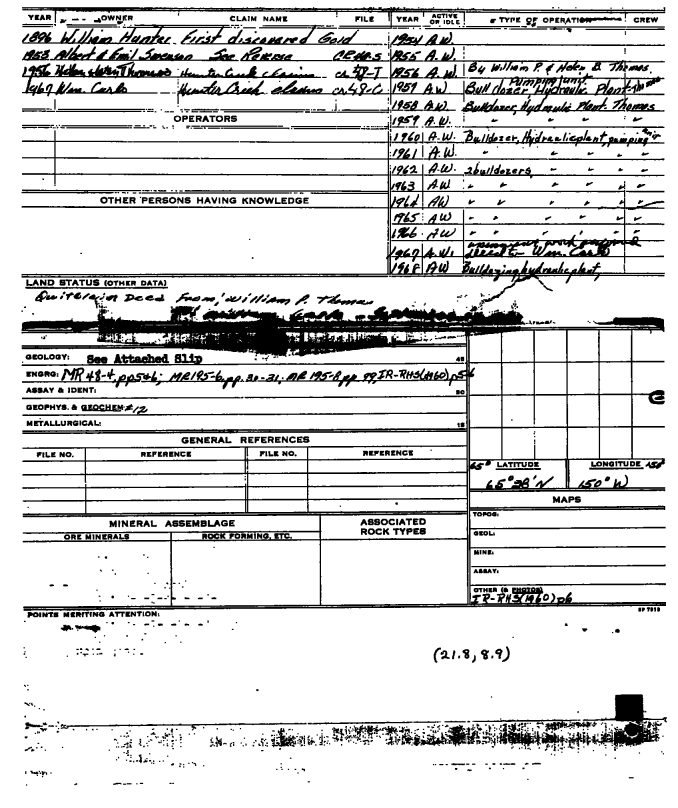 YEAR OWNER CLAIM NAME FILE
1896 William Hunter First discovered Gold
1953 Albert & Emil Swenson See Reverse
1956 Thomas Hunter Creek claims cr 48-T
1967 Wm. Carlo Hunter Creek claims cr 48-C
OPERATORS
OTHER PERSONS HAVING KNOWLEDGE
YEAR ACTIVE OR IDLE TYPE OF OPERATION CREW
1954 A.W.
1955 A.W.
1956 A.W. By William P. & Helen B. Thomas,
Pumping unit
1957 A.W Bulldozer, Hydraulic Plant
1958 A.W Bulldozer, Hydraulic Plant. Thomas
1959 A.W.
1960 A.W. Bulldozer, Hydraulic plant, pumping unit
1961 A.W. " " " " "
1962 A.W. 2 bulldozers, " " "
1963 A.W " " " " " "
1964 AW " " " " "
1965 AW " " " " " "
1966 AW " " " " " "
1967 A.W. Wm. Carlo
1968 AW Bulldozing hydraulic plant,
LAND STATUS (OTHER DATA)
Quitclaim Deed From, William P. Thomas
GEOLOGY: See Attached Slip
ENGRG: MR 48-4, pp 5&6; MR195-6, pp. 30-31; MR 195-8, pp. 99, IR-RHS(1960) p5-6
ASSAY & IDENT:
GEOPHYS. & GEOCHEM #12
METALLURGICAL:
GENERAL REFERENCES
FILE NO. REFERENCE FILE NO. REFERENCE
MINERAL ASSEMBLAGE
ORE MINERALS ROCK FORMING, ETC.
ASSOCIATED ROCK TYPES
65° LATITUDE LONGITUDE 150°
65° 38' N 150° W
MAPS
TOPOG:
GEOL:
MINE:
ASSAY:
OTHER (& PHOTOS)
IR-RHS(1960) p6
POINTS MERITING ATTENTION:
(21.8, 8.9)